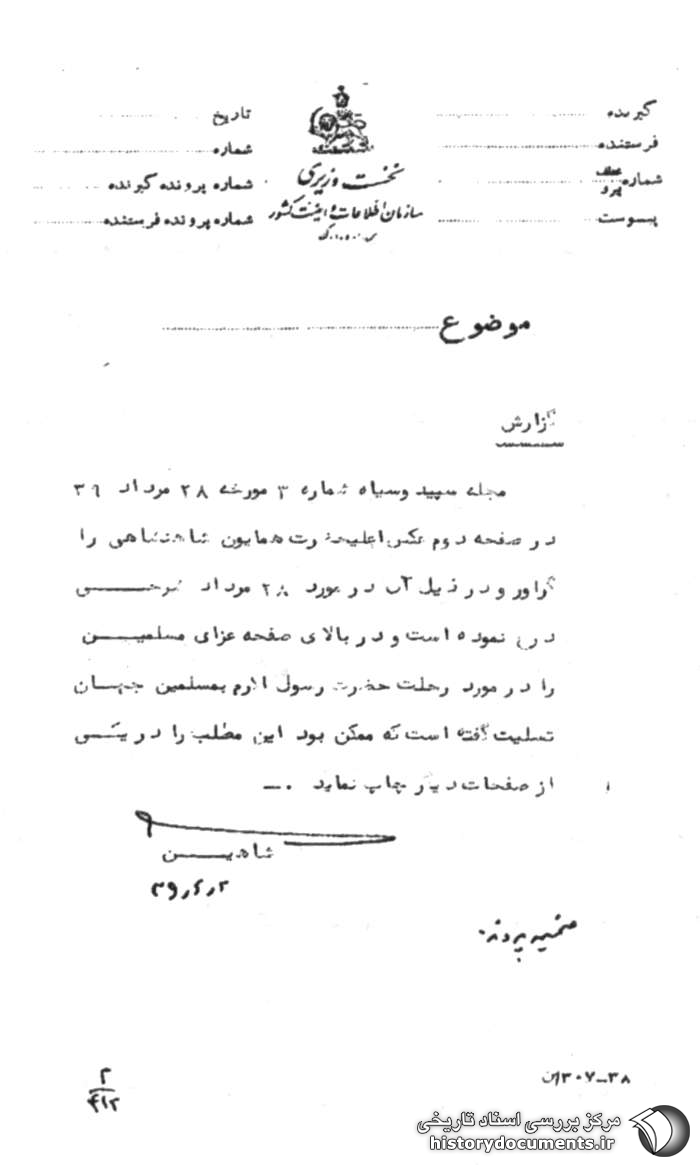 گیرنده
فرستنده
شماره
پیوست
نخست وزیری
سازمان اطلاعات و امنیت کشور
س.ا.و.ا.ک
تاریخ
شماره
شماره پرونده گیرنده
شماره پرونده فرستنده
موضوع
گزارش
مجله سپید وسیاه شماره ۳ مورخه ۲۸ مرداد ۳۹
در صفحه دوم عکس اعلیحضرت همایون شاهنشاهی را
گراور و در ذیل آن در مورد ۲۸ مرداد شرحی
درج نموده است و در بالای صفحه عزای مسلمین
را در مورد رحلت حضرت رسول اکرم بمسلمین جهان
تسلیت گفته است که ممکن بود این مطلب را در یکی
از صفحات دیگر چاپ نماید .ـ
شاهین
ضمیمه پرونده
۳۸-۳۰۷
۲
۴۱۲
مرکز بررسی اسناد تاریخی
historydocuments.ir